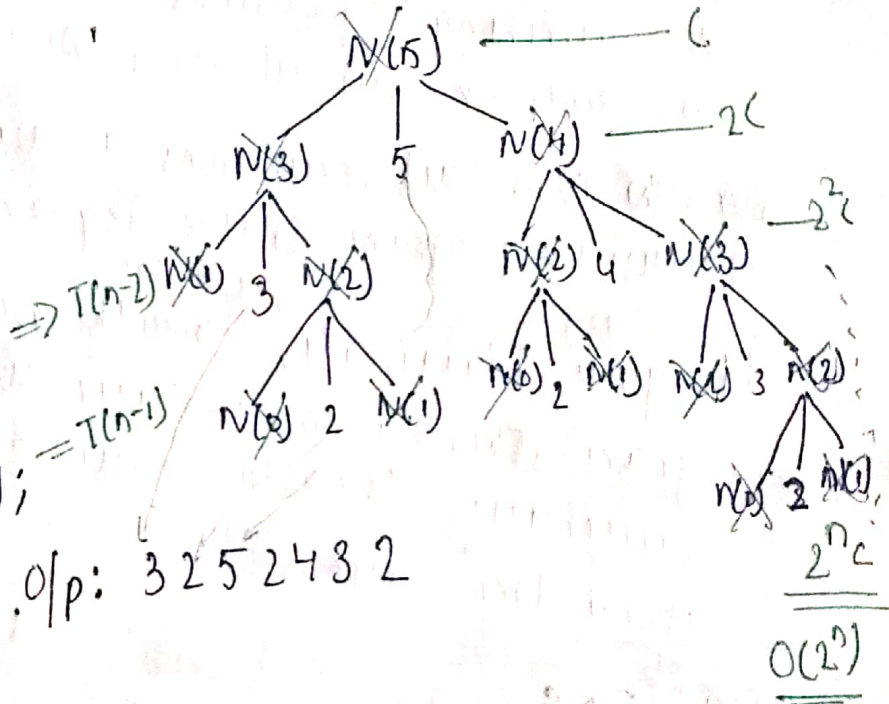 N(5) C
N(3) 5 N(4) 2C
=> T(n-2) N(1) 3 N(2) N(2) 4 N(3) 2²C
= T(n-1) N(0) 2 N(1) N(0) 2 N(1) N(1) 3 N(2)
; N(0) 2 N(1)
O/p: 3 2 5 2 4 3 2 2ⁿC
O(2ⁿ)